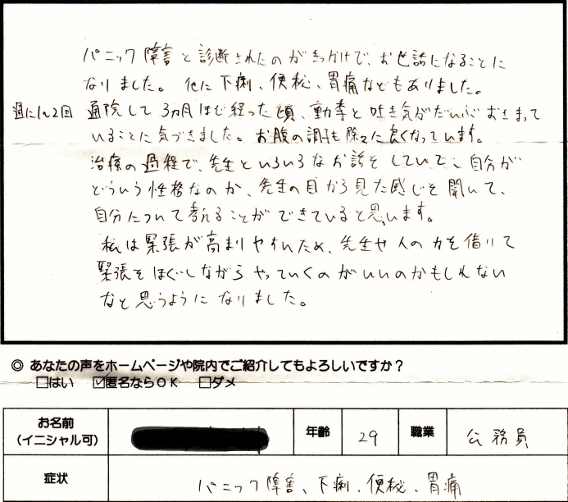 パニック障害と診断されたのがきっかけで、お世話になることに
なりました。他に下痢、便秘、胃痛などもありました。
週に1~2回 通院して3ヵ月ほど経った頃、動季と吐き気がだいぶおさまって
いることに気づきました。お腹の調子も除々に良くなっています。
治療の過程で、先生といろいろなお話をしていて、自分が
どういう性格なのか、先生の目から見た感じを聞いて、
自分について考えることができていると思います。
私は緊張が高まりやすいため、先生や人の力を借りて
緊張をほぐしながらやっていくのがいいのかもしれない
なと思うようになりました。
◎ あなたの声をホームページや院内でご紹介してもよろしいですか？
□はい ☑匿名ならOK □ダメ
お名前
(イニシャル可)
年齢 29 職業 公務員
症状 パニック障害、下痢、便秘、胃痛